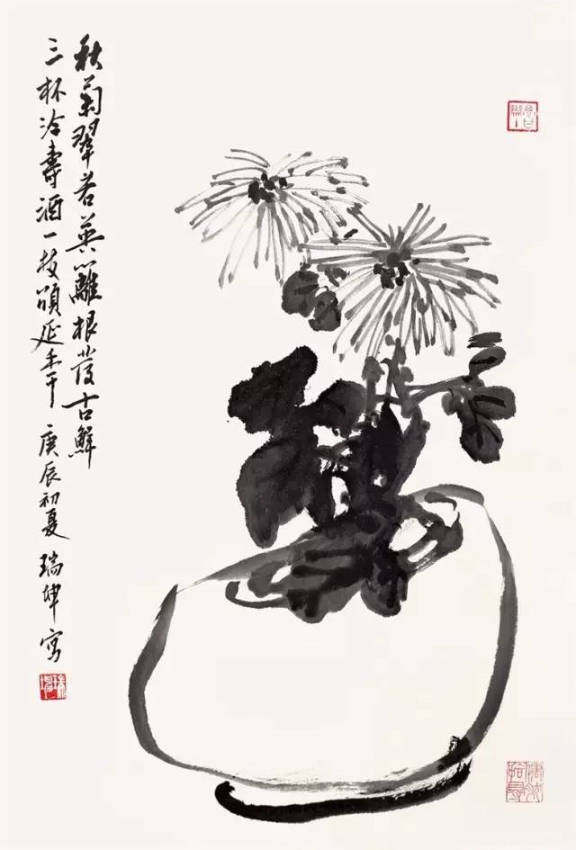 秋菊翠若英籬根發古鮮
三杯泠壽酒一枝頌延年 庚辰初夏 瑞坤寫